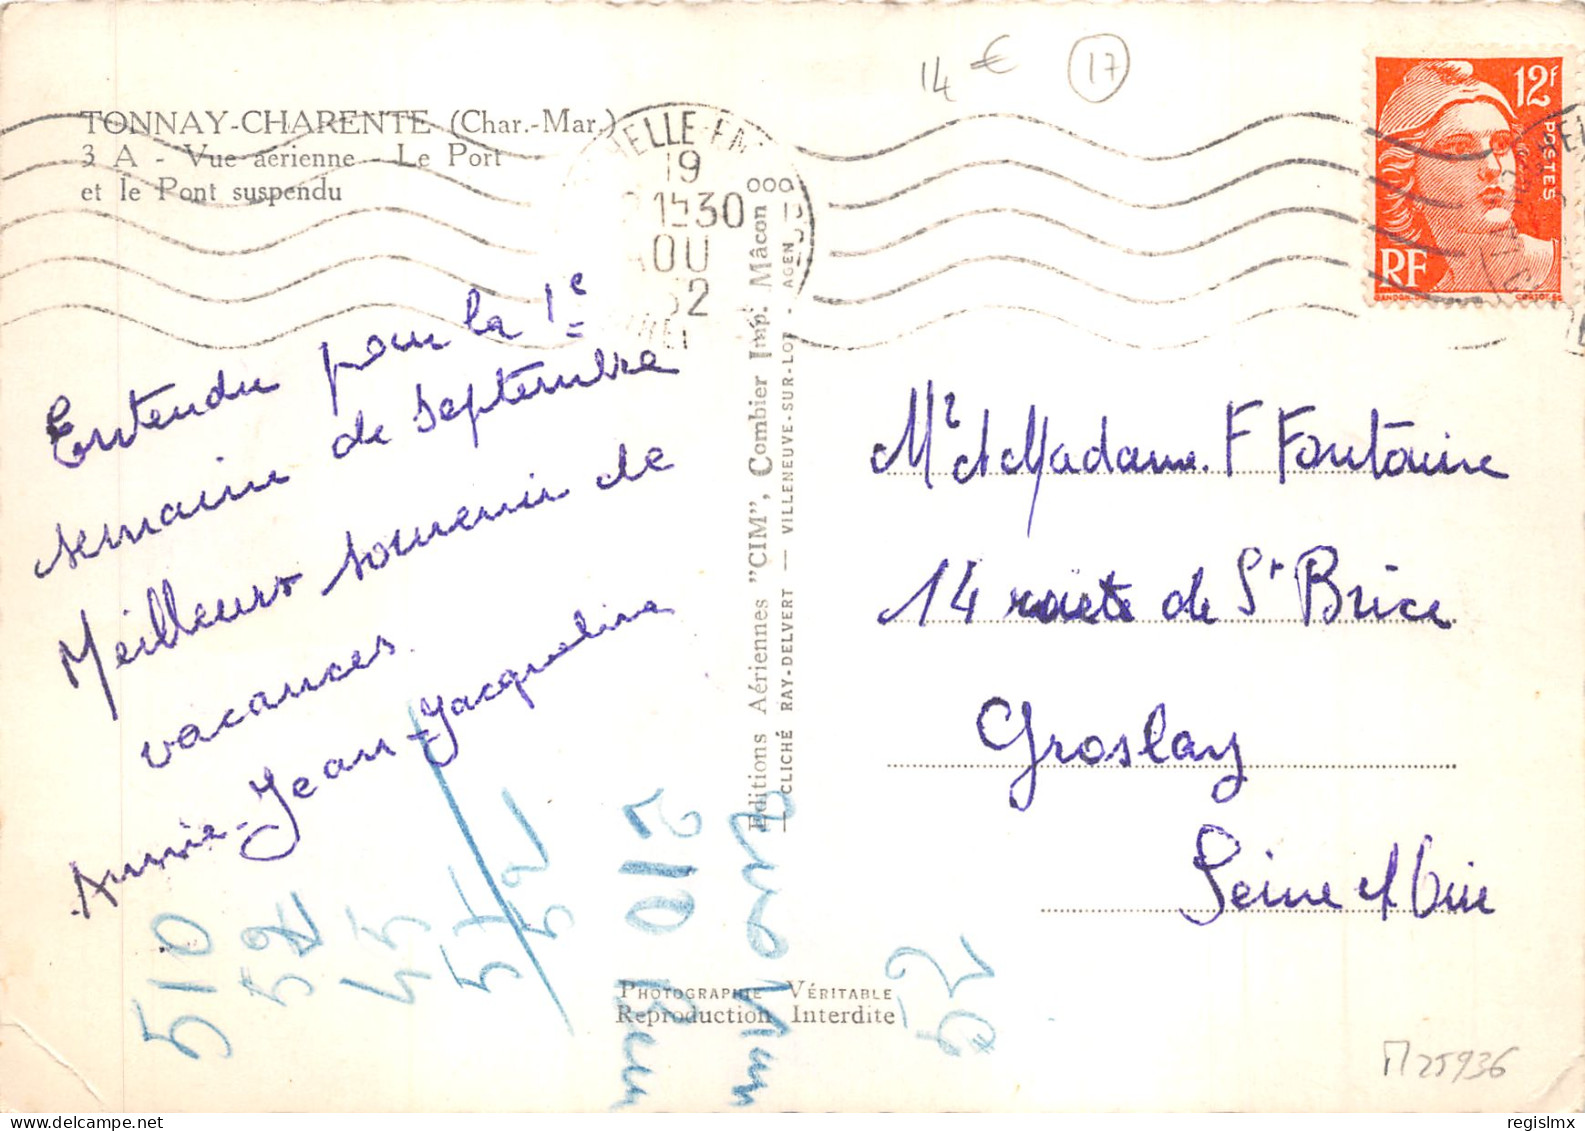 14 € 17
TONNAY-CHARENTE (Char.-Mar.)
3 A - Vue aérienne - Le Port
et le Pont suspendu
19
1530
52
12F
POSTES
RF
Entendu pour la 1e
semaine de septembre
Meilleurs souvenir de
vacances.
Annie-Jean-Jacqueline
Editions Aériennes "CIM", Combier Imp. Mâcon
CLICHÉ RAY-DELVERT — VILLENEUVE-SUR-LOT - AGEN
Mr et Madame F Fontaine
14 route de St Brice
Groslay
Seine et Oise
510
52
45
51
52
52
PHOTOGRAPHIE VÉRITABLE
Reproduction Interdite
M25936
regislmx delcampe.net